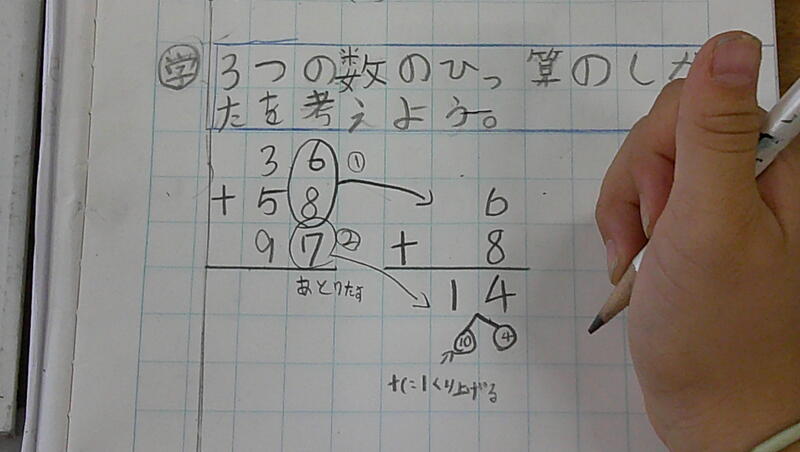 学
3つの数のひっ算のしか
たを考えよう。
36 ①
+58
97 ②
6
+ 8
14
⑩ ④
+に1くり上げる